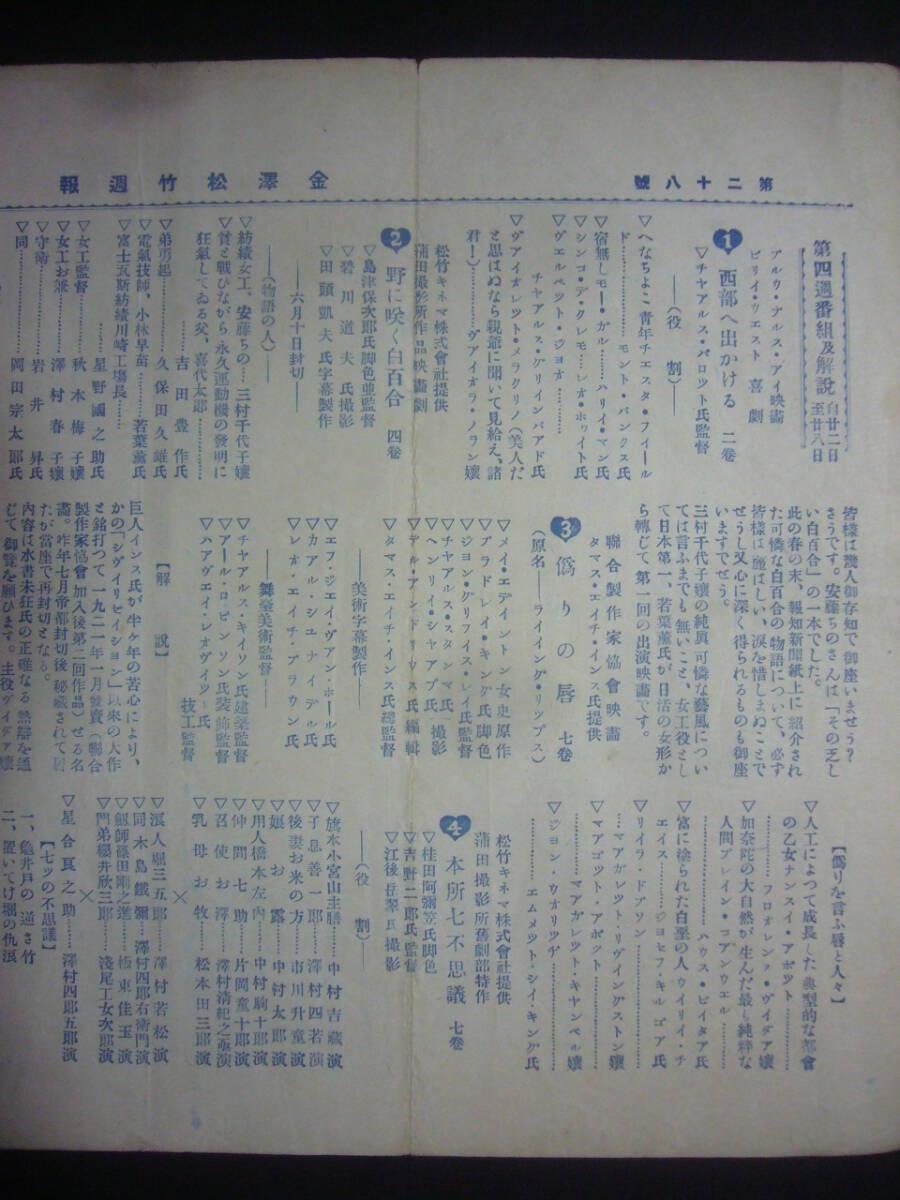 第二十八號
金澤松竹週報
第四週番組及解說
自廿二日
至廿八日
アルウ・アルス・アイ映畵
ビリイ・ウエスト喜劇
1 西部へ出かける 二卷
▽チヤアルス・パロツト氏監督
――(役割)――
▽へなちよこ青年チエスタ・フイール
ド……………モント・バンクス氏
▽宿無しモー・ガル………ハリイ・マン氏
▽シンコ・デ・クレモ…レオ・ホワイト氏
▽ヴエルベツト・ジヨオ…………
チヤアルス・グリインバアド氏
▽ヴアイオレツト・メラクリノ(美人だ
と思はぬなら親爺に聞いて見給え、諸
君!)………ヴアイオラ・ノラン孃
松竹キネマ株式會社提供
蒲田撮影所作品映畵劇
2 野に咲く白百合 四卷
▽島津保次郞氏脚色並監督
▽碧川道夫氏撮影
▽田頭凱夫氏字幕製作
――六月十日封切――
――(物語の人)――
▽紡績女工、安藤ちの…三村千代子孃
▽貧と戰ひながら永久運動機の發明に
狂氣してゐる父、喜代太郞…………
吉田豊作氏
▽弟勇起…………久保田久雄氏
▽電氣技師、小林早苗……若葉薰氏
▽富士瓦斯紡績川崎工場長…………
星野國之助氏
▽女工監督…………秋本梅子孃
▽女工お兼…………澤村春子孃
▽守衛…………岩井昇氏
▽同…………岡田宗太郞氏
皆樣は幾人御存知で御座いませう?
さうです。安藤ちのさんは「その乏し
い白百合」の一本でした。
此の春の末、報知新聞紙上に紹介され
た可憐な白百合の物語について、必ず
皆樣は誰ばしい、涙を惜しまぬことで
せうし又心に深く得られるものも御座
いますでせう。
三村千代子孃の純眞可憐な藝風につい
ては言ふまでも無いこと、女工役とし
て日本第一、若葉薰氏が日活の女形か
ら轉じて第一回の出演映畵です。
聯合製作家協會映畵
タマス・エイチ・インス氏提供
3 僞りの唇 七卷
(原名――ライイング・リツプス)
▽メイ・エデイントン女史原作
▽ブラドレイ・キング氏脚色
▽ジヨン・グリフイス・レイ氏監督
▽チヤアルス・スタンマ氏 撮影
▽ヘンリイ・シヤアプ氏
▽デル・アンドリウス氏編輯
▽タマス・エイチ・インス氏總監督
――美術字幕製作――
▽エフ・ジエイ・ヴアン・ホール氏
▽カアル・シユナイデル氏
▽レオ・エイチ・ブラウン氏
――舞臺美術監督――
▽チヤアルス・キイソン氏建築監督
▽アール・ロビンソン氏裝飾監督
▽ハアヴエイ・レオヴイツ氏
技工監督
【解說】
巨人インス氏が半ケ年の苦心により、
かの「シヴイリゼイシヨン」以來の大作
と銘打つて一九二一年一月發賣(聯合
製作家協會加入後第二回作品)せる名
畵。昨年七月帝都封切後秘藏されて居
たが當座で再封切となる。
內容は水書未狂氏の正確なる熱辯を通
じて御覽を願ひます。主役ヴイダア孃
【僞りを言ふ唇と人々】
▽人工によつて成長した典型的な都會
の乙女ナンスイ・アボツト…………
………フロオレンツ・ヴイダア孃
▽加奈陀の大自然が生んだ最も純粹な
人間ブレイン・コアンウエル…………
………ハウス・ピイタア氏
▽富に塗られた白堊の人、ウイリイ・チ
エイス・ジヨセフ・キルゴア氏
▽リイラ・ドアソン…………
……マアガレツト・リヴイングストン孃
▽マアゴツト・アボツト…………
………マアガレツト・キヤンベル孃
▽ジヨン・ウオリツヂ…………
………エムメツト・シイ・キング氏
松竹キネマ株式會社提供
蒲田撮影所舊劇部特作
4 本所七不思議 七卷
▽桂田阿彌笠氏脚色
▽吉野二郞氏監督
▽江後岳翠氏撮影
――(役割)――
▽旗本小宮山主膳…中村吉藏演
▽子息善一郞…澤村四若演
▽後妻お米の方…市川升童演
▽娘お露…中村太郞演
▽用人橋本左內…中村駒十郞演
▽仲間七助…片岡童十郞演
▽召使お澤…澤村淸紀之丞演
▽乳母お牧…松本田三郞演
×
▽浪人堀三五郞…澤村若松演
▽同木島鐵彌…澤村四郞右衛門演
▽劍師篠田剛之進…坂東佳玉演
▽門弟櫻井欣三郞…淺尾工女次郞演
×
▽星合良之助…澤村四郞五郞演
【七ツの不思議】
一、龜井戶の逆さ竹
二、置いてけ堀の仇浪